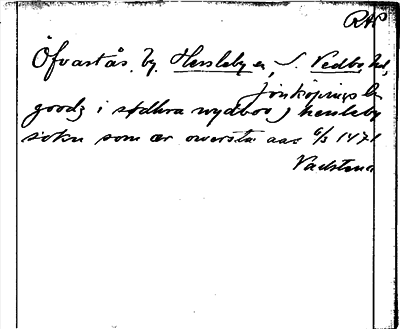 RAP
Öfvastås, by, Hessleby sn, S. Vedbo hd,
Jönköpings l.
goodz i södhra wydboo j hesleby
sokn som ær owersta aas 6/3 1471
Vadstena